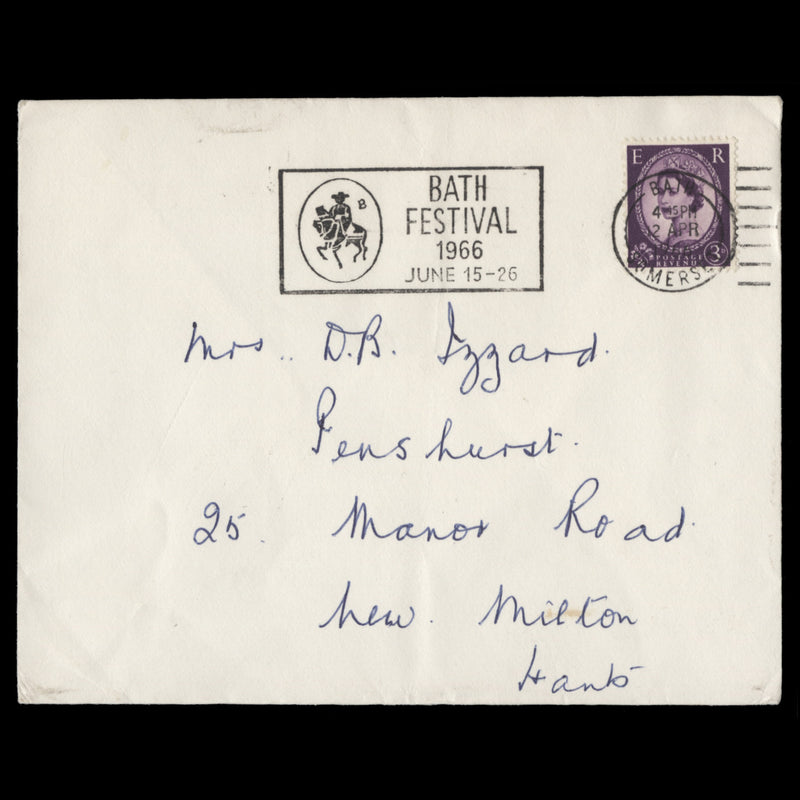 BATH
FESTIVAL
1966
JUNE 15-26
B
E R
BATH
4 15PM
2 APR
SOMERSET
POSTAGE
REVENUE
3D
Mrs.. D.B. Izzard.
Penshurst.
25. Manor Road
New. Milton
Hants